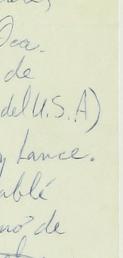 Oca.
de
del U.S.A)
y Lance.
ablé
nó de